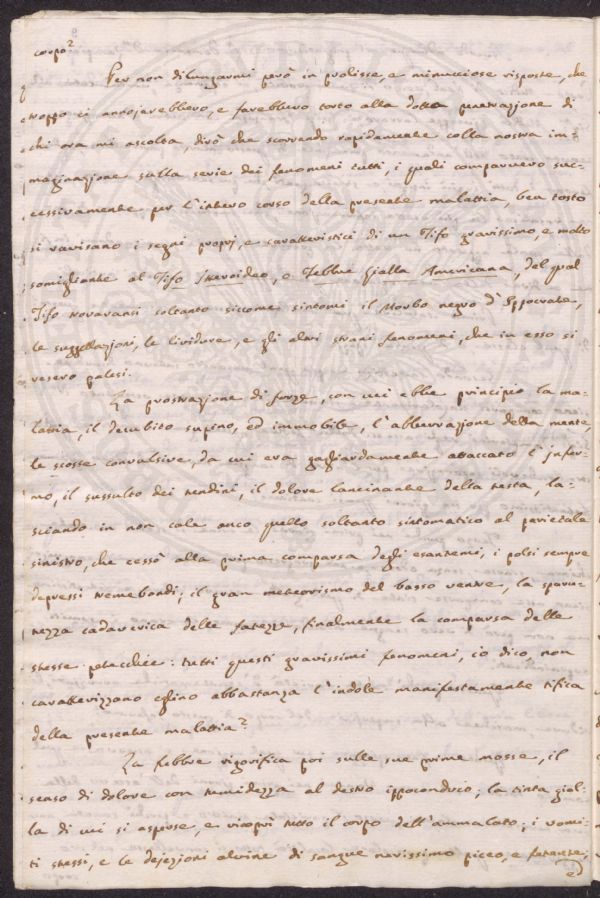 corpo?
Per non dilungarmi però in prolisse e minucciose risposte, che
troppo ci annojarebbero, e farebbero torto alla dotta penetrazione di
chi ora mi ascolta, dirò che scorrendo rapidamente colla nostra im=
maginazione sulla serie dei fenomeni tutti, i quali comparvero suc=
cessivamente per l'intero corso della presente malattia, ben tosto
si ravisano i segni proprj, e caratteristici di un Tifo gravissimo, e molto
somigliante al Tifo Itteroideo, o Febbre Gialla Americana, del qual
Tifo trovaransi soltanto siccome sintomi il Morbo negro d'Ippocrate,
le suggellazioni, le lividure, e gli altri strani fenomeni, che in esso si
resero palesi.
La prostrazione di forze, con cui ebbe principio la ma=
lattia, il decubito supino, ed immobile, l'abberrazione della mente,
le scosse convulsive, da cui era gagliardamente attaccato l'infer=
mo, il sussulto dei tendini, il dolore lancinante della testa, la=
sciando in non cale anco quello soltanto sintomatico al parietale
sinistro, che cessò alla prima comparsa degli esantemi, i polsi sempre
depressi tremebondi; il gran meteorismo del basso ventre, la sparu=
tezza cadaverica delle fatezze, finalmente la comparsa delle
stesse petecchie: tutti questi gravissimi fenomeni, io dico, non
caratterizzano eglino abbastanza l'indole manifestamente tifica
della presente malattia?
La febbre rigorifica poi sulle sue prime mosse, il
senso di dolore con tumidezza al destro ippocondrio; la tinta gial=
la di cui si asperse, e ricoprì tutto il corpo dell'ammalato; i vomi=
ti stessi, e le dejezioni alvine di sangue nerissimo piceo, e fetente;
e